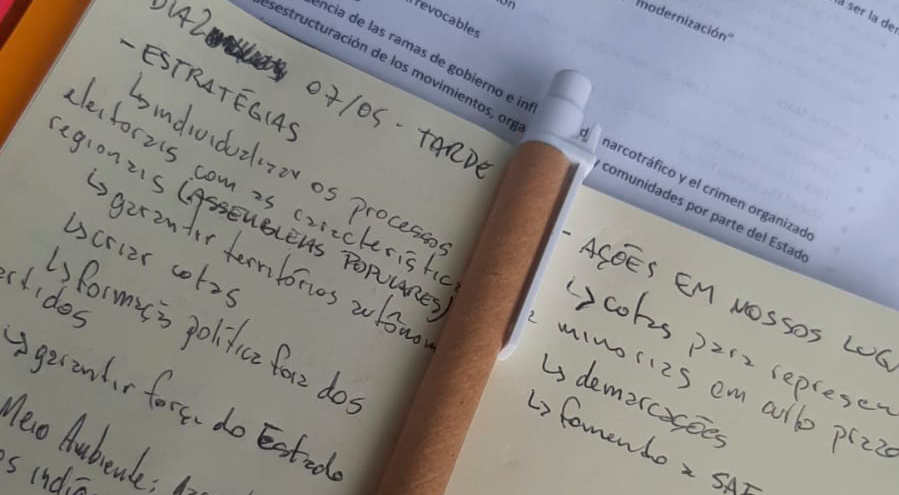 ser la
modernización"
revocables
encia de las ramas de gobierno e infl
desestructuración de los movimientos, orga
narcotráfico y el crimen organizado
comunidades por parte del Estado
DIA 2
07/05 - TARDE
- ESTRATÉGIAS
↳ individualizar os processos
eleitorais com as caracteristic
regionais (ASSEMBLEIAS POPULARES)
↳ garantir territórios autônom
↳ criar cotas
↳ formação política fora dos
artidos
↳ garantir força do Estado
Meio Ambiente:
os indíg
- AÇÕES EM NOSSOS LUGA
↳ cotas para represen
minorias em curto prazo
↳ demarcações
↳ fomento a SAF